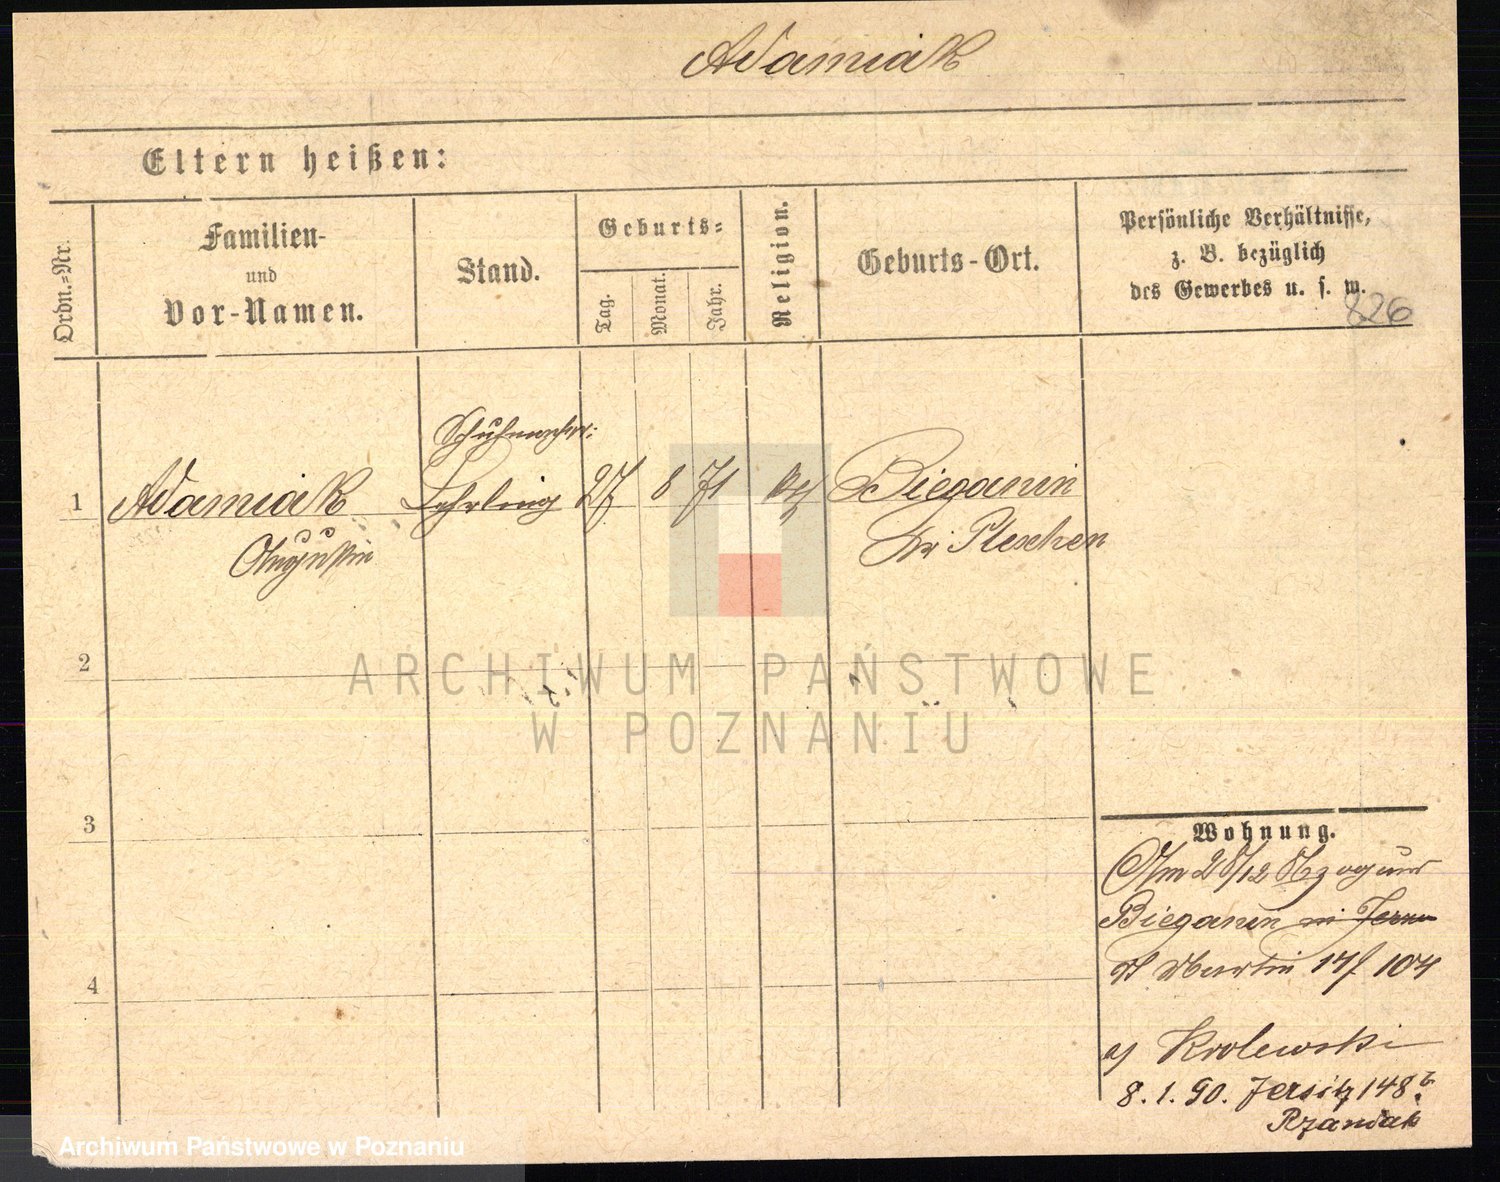 Adamiak
Eltern heißen:
Ordn.-Nr.
Familien-
und
Vor-Namen.
Stand.
Geburts-
Tag.
Monat.
Jahr.
Religion.
Geburts-Ort.
Persönliche Verhältnisse,
z. B. bezüglich
des Gewerbes u. s. w.
826
1
Adamiak
Augustin
Schuhmacher
Lehrling
27
8
71
kath
Bieganin
Kr Pleschen
2
3
4
Wohnung.
Am 28/12 89 zog aus
Bieganin
St Martin 17/ 104
a/ Krolewski
8. 1. 90. Jersitz 148
Rzaniak
ARCHIWUM PAŃSTWOWE
W POZNANIU
Archiwum Państwowe w Poznaniu